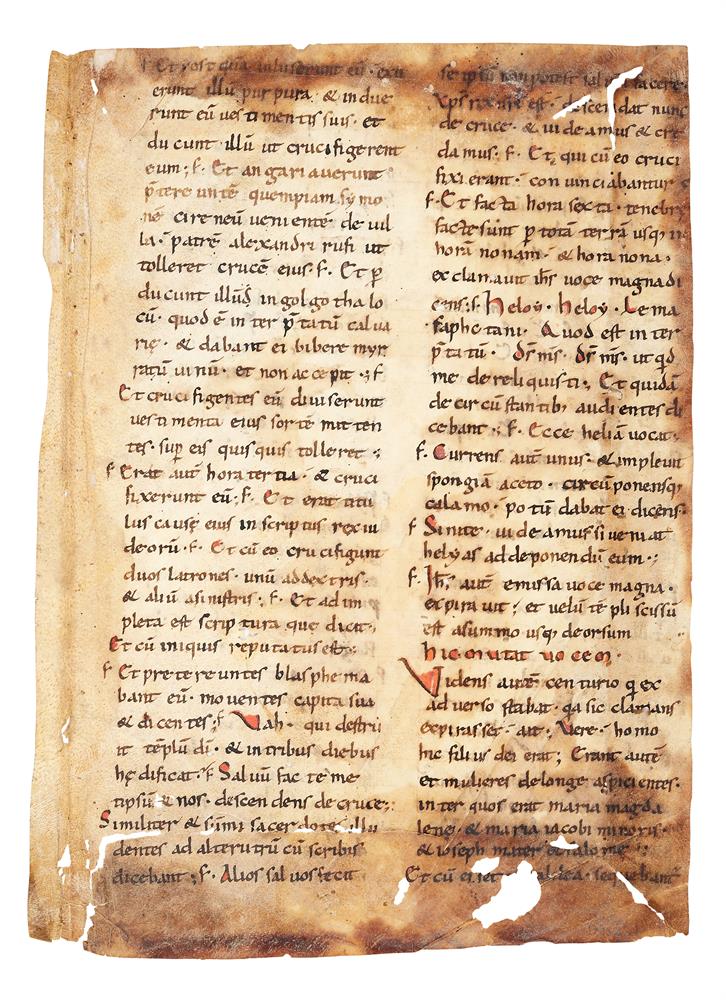 Et post quā inluserunt eū · exu
erunt illū purpura · & indue
runt eū vestimentis suis · et
du cunt · illū ut crucifigerent
eum ; f. Et angariaverunt
p̄tere untē quempiam symo
nē cireneū venientē de vil
la · patrē alexandri rufi ut
tolleret crucē eius. f. Et p̱
du cunt illud in golgotha lo
cū · quod ē in ter p̄tatū calua
rię · & dabant ei bibere myr
ratū uinū · et non accepit ; f
Et cruci figentes eū diuiserunt
vestimenta eius sortē mitten
tes · sup̱ eis quis quis tolleret ;
f Erat aut̄ hora tertia · & cruci
fixerunt eū ; f. Et erat titu
lus causę eius in scriptus rex iu
deorū · f. Et cū eo crucifigunt
duos latrones · unū addextris ·
& aliū asinistris ; f. Et ad im
pleta est scriptura quę dicit ;
Et cū iniquis reputatus est ;
f Et pretereuntes blasphema
bant eū · moventes capita sua
& dicentes ; f Vah · qui destru
it tēplū dī · & in tribus diebus
hę dificat · f Saluū fac te me
tipsū & nos · descendens de cruce ;
Similiter & sūmi sacerdotes illu
dentes ad alterutrū cū scribis
dicebant ; f. Alios saluos fecit
se ipsū non potest saluū facere ·
Xp̄s rex isrł est · descendat nunc
de cruce · & uideamus & cre
damus · f. Et qui cū eo cruci
fixi erant · conuinciabantur
f. Et facta hora sexta · tenebrę
facte sunt p̱ totā terrā usq; in
horā nonam · & hora nona ·
exclamauit ih̄s uoce magna di
cens ; f. Heloy · heloy · Lema
saphctani · Quod est in ter
p̄tatū · Ds̄ ms̄ · ds̄ ms̄ · ut qd
me dereliquisti ; Et quidā
de circūstantib; audientes di
cebant ; f. Ecce heliā uocat ;
f. Currens aut̄ unus · & impleuit
spongiā aceto · circūponensq;
calamo · potū dabat ei dicens ·
f Sinite · uideamus si ueniat
helyas ad deponendū eum ;
f. Ih̄s aut̄ emissa uoce magna ·
expirauit ; et uelū tēpli scissū
est asummo usq; deorsum
hic mutat uocem ·
Videns autē centurio q̱ ex
aduerso stabat · q̱a sic clamans
expirasset · ait · Vere · homo
hic filius dei erat ; Erant autē
et mulieres delonge aspicientes ·
inter quos erat maria magda
lene · & maria iacobi minoris ·
& ioseph mater et salome ·
Et cū esset galilea · sequebant